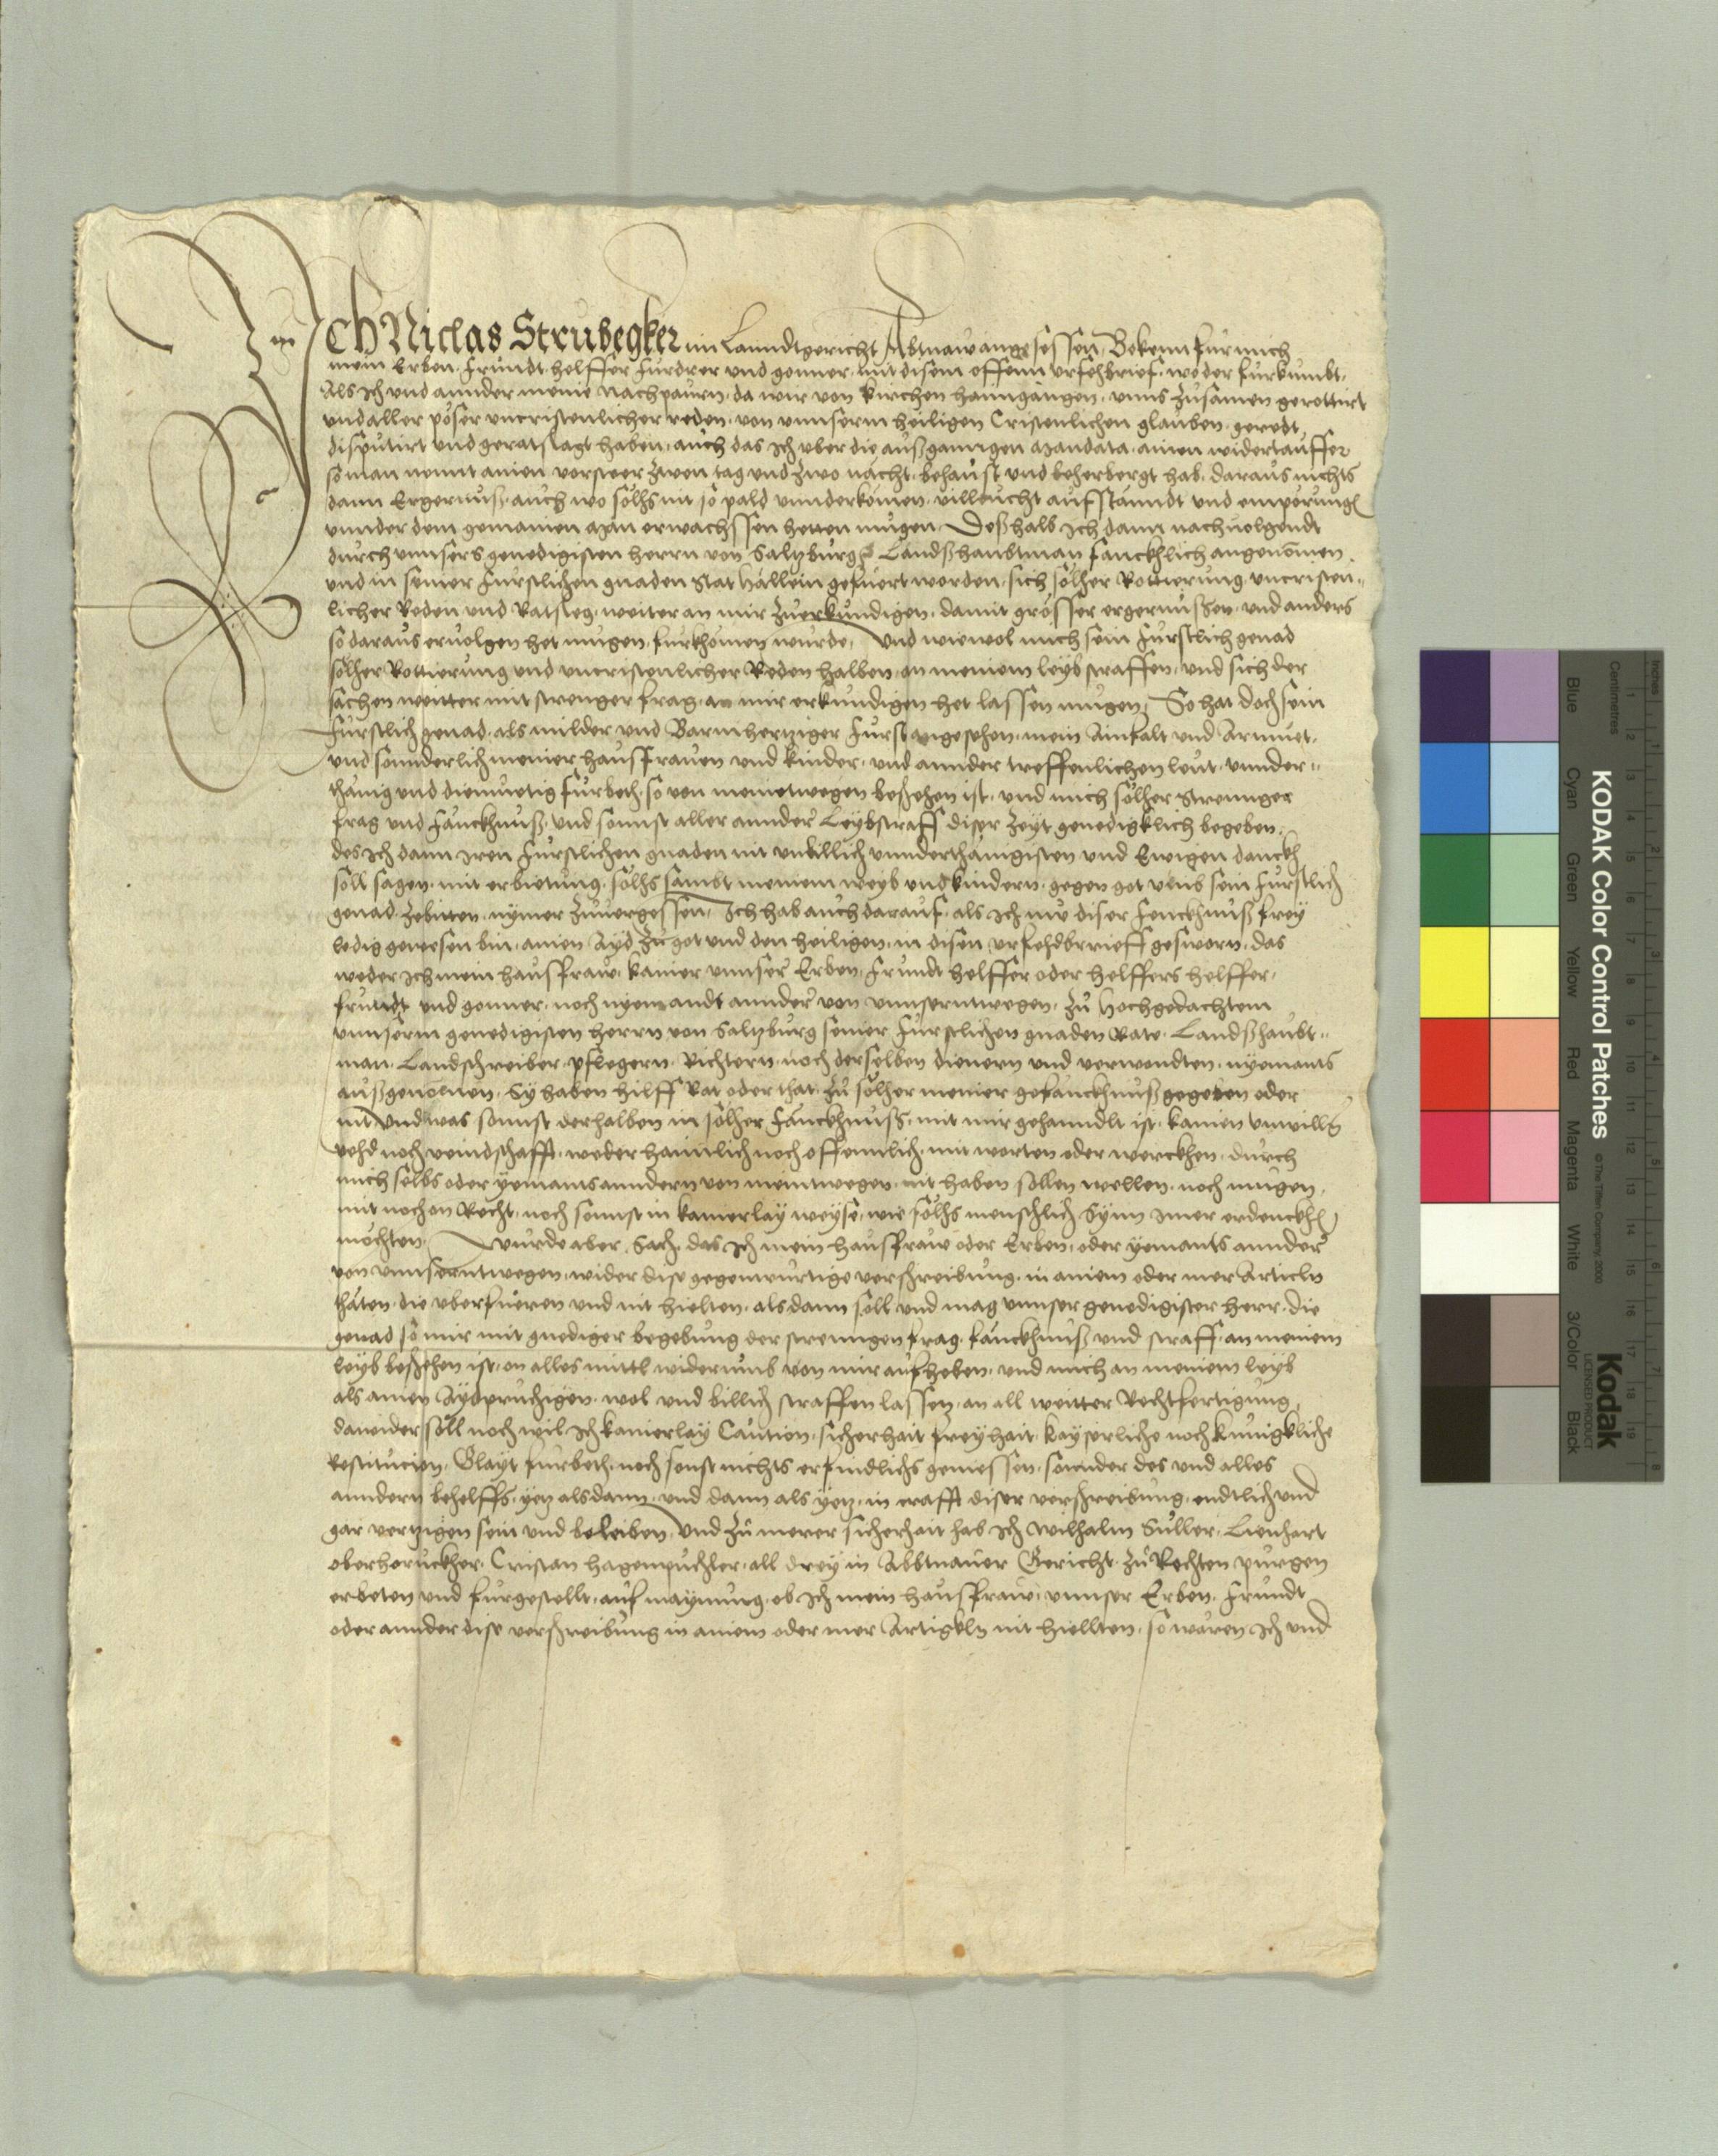 Ich Niclas Strubegker im Lanndtgericht Abtnaw angesessen, Bekenn fur mich
mein Erben, frundt, helffer furdrer vnd gonner, mit disem offenn vrfehbrief, wo der furkumbt,
Als Ich vnd annder meine nachpaurn, da wir von kirchen haimgangen, vnns zusamen gerottirt
vnd aller poser vncristenlicher reden, von vnnserm heiligen Cristenlichen glauben, geredt
disputirt vnd geratslagt haben, auch das Ich vber die aussganngen Mandata, ainen widertauffer
so man nennt ainen vorsteer zwen tag vnd zwo nächt, behaust vnd beherbergt hab, daraus nichts
dann Ergernuß, auch wo solhs nit so pald vnnderkomen, villeucht aufstanndt vnd emporungen
vnnder dem gemainen Man erwachssen hetten mugen, Deßhalb Ich dann nachuolgendt
durch vnnsers genedigisten herrn von Saltzburg Landßhaubtman fanckhlich angenomen
vnd in seiner furstlichen gnaden Stat Hällein gefuert worden, sich solher Rottierung, vncristen-
licher Reden vnd Ratsleg, weiter an mir zuerkundigen, damit grösser ergernussen, vnd anders
so daraus eruolgen het mugen, furkhomen wurde, Vnd wiewol mich sein furstlich genad
solher Rottierung vnd vncristenlicher Reden halben, an meinem leyb straffen, vnd sich der
sachen weitter mit strenger frag, an mir erkundigen het lassen mugen, So hat doch sein
furstlich genad, als milder vnd Barmhertziger Furst angesehen, mein Ainfalt vnd Armuet,
vnd sonnderlich meiner hausfrauen vnd kinder, vnd annder treffenlichen leut, vnnder-
thänig vnd diemuetig furbeth, so von meinetwegen beschehen ist, vnd mich solher Strennger
frag vnd fanckhnuß, vnd sonnst aller annder Leybstraff diser zeyt genedigklich begeben,
des Ich dann Iren furstlichen gnaden nit vnbillich vnnderthänigisten vnd Ewigen danckh
solt sagen, mit erbietung, solhs sambt meinem weyb vnd kindern, gegen got vmb sein furstlich
genad zebitten, nymer zuuergessen, Ich hab auch darauf, als Ich nw diser fenckhnuß frey
ledig gewesen bin, ainen Ayd zu got vnd den heiligen, in disen vrfehdbrieff gesworn, das
weder Ich mein hausfraw, kainer vnnser Erben, frundt helffer oder helffers helffer,
frundt vnd gonner, noch nyemandt annder von vnnserntwegen, zu hochgedachtem
vnnserm genedigisten herrn von Saltzburg seiner furstlichen gnaden Räte, Landßhaubt-
man, Landschreiber, pflegern, Richtern, noch derselben dienern vnd verwondten, nyemants
außgenomen, Sy haben hilff Rat oder that zu solher meiner gefanckhnuß gegeben oder
nit, Vnd was sonnst derhalben in solher fanckhnuß, mit mir gehanndlt ist, kainen vnwilln
vehd noch veindschafft, weder haimlich noch offennlich, mit worten oder werckhen, durch
mich selbs oder yemants anndern von meintwegen, nit haben sollen wellen, noch mugen,
mit noch on Recht, noch sonnst in kainerlay weyse, wie solhs menschlich Synn ymer erdenckhen
möchten, Wurde aber sach, das Ich mein hausfraw oder Erben, oder yemants annder
von vnnserntwegen, wider dise gegenwurtige verschreibung, in ainem oder mer Articln
thäten, die vberfueren vnd nit hielten, alsdann soll vnd mag vnnser genedigister herr, die
genad so mir mit gnediger begebung der strenngen frag, fanckhnuß vnd straff, an meinem
leyb beschehen ist, on alles mittl widerumb von mir aufheben, vnd mich an meinem leyb
als ainen Aydpruchigen, wol vnd billich straffen lassen, an all weitter Rechtfertigung,
dawider soll noch wil Ich kainerlay Caution, sicherhait freyhait, kayserliche noch kunigkliche
Restitucion, Glayt furbeth, noch sonst nichts erfindlichs geniessen, sonnder des vnd alles
anndern behelffs, yetz alsdann, vnd dann als yetz, in crafft diser verschreibung, endtlich vnd
gar vertzigen sein vnd beleiben, Vnd zu merer sicherhait hab Ich Wilhalm Suller, Lienhart
oberheruckher, Cristan hagenpuchler, all drey in Abbtnauer Gericht zu Rechten purgen
erbeten vnd furgestellt, auf maynung, ob Ich mein hausfraw, vnnser Erben, frundt
oder annder dise verschreibung in ainem oder mer Artigkln nit hiellten, so wären Ich vnd